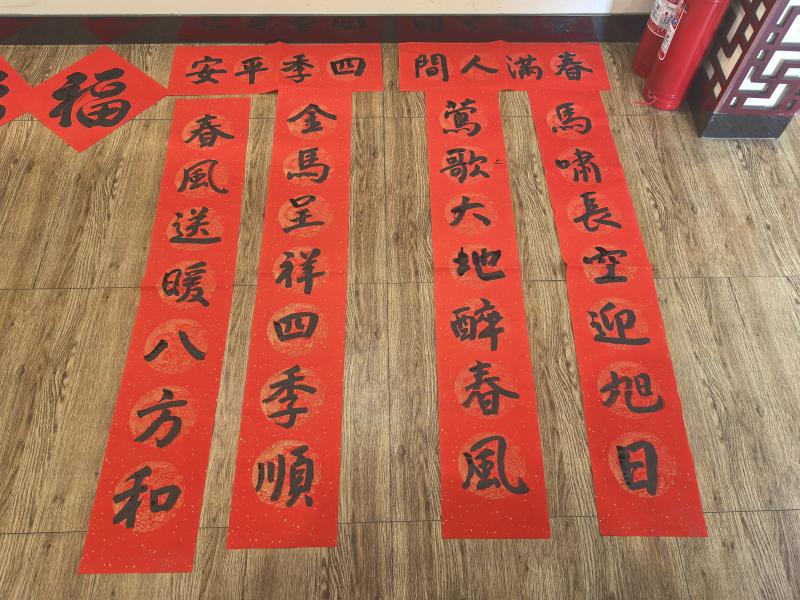 春滿人間
馬嘯長空迎旭日
鶯歌大地醉春風
四季平安
金馬呈祥四季順
春風送暖八方和
福